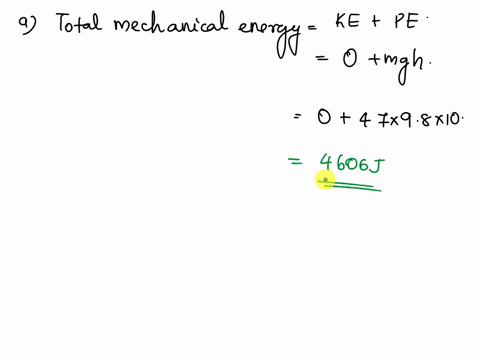 a) Total mechanical energy = KE + PE.
= 0 + mgh.
= 0 + 47×9.8×10.
= 4606J